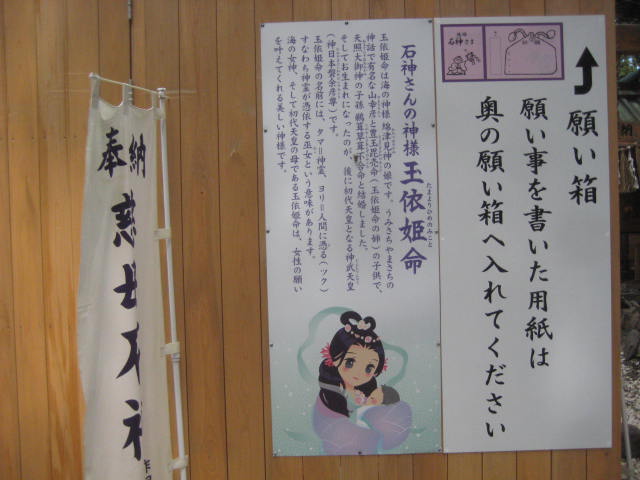 願い箱
願い事を書いた用紙は
奥の願い箱へ入れてください
石神さま
石神さんの神様 玉依姫命
たまよりひめのみこと
玉依姫命は海の神様 綿津見神の娘です。うみさちやまさちの
神話で有名な山幸彦と豊玉毘売命（玉依姫命の姉）の子供で、
天照大御神の子孫 鵜葺草葺不合命と結婚しました。
そしてお生まれになったのが、後に初代天皇となる神武天皇
（神日本磐余彦尊）です。
玉依姫命の名前には、タマ＝神霊、ヨリ＝人間に憑る（ツク）
すなわち神霊が憑依する巫女という意味があります。
海の女神、そして初代天皇の母である玉依姫命は、女性の願い
を叶えてくれる美しい神様です。
奉納